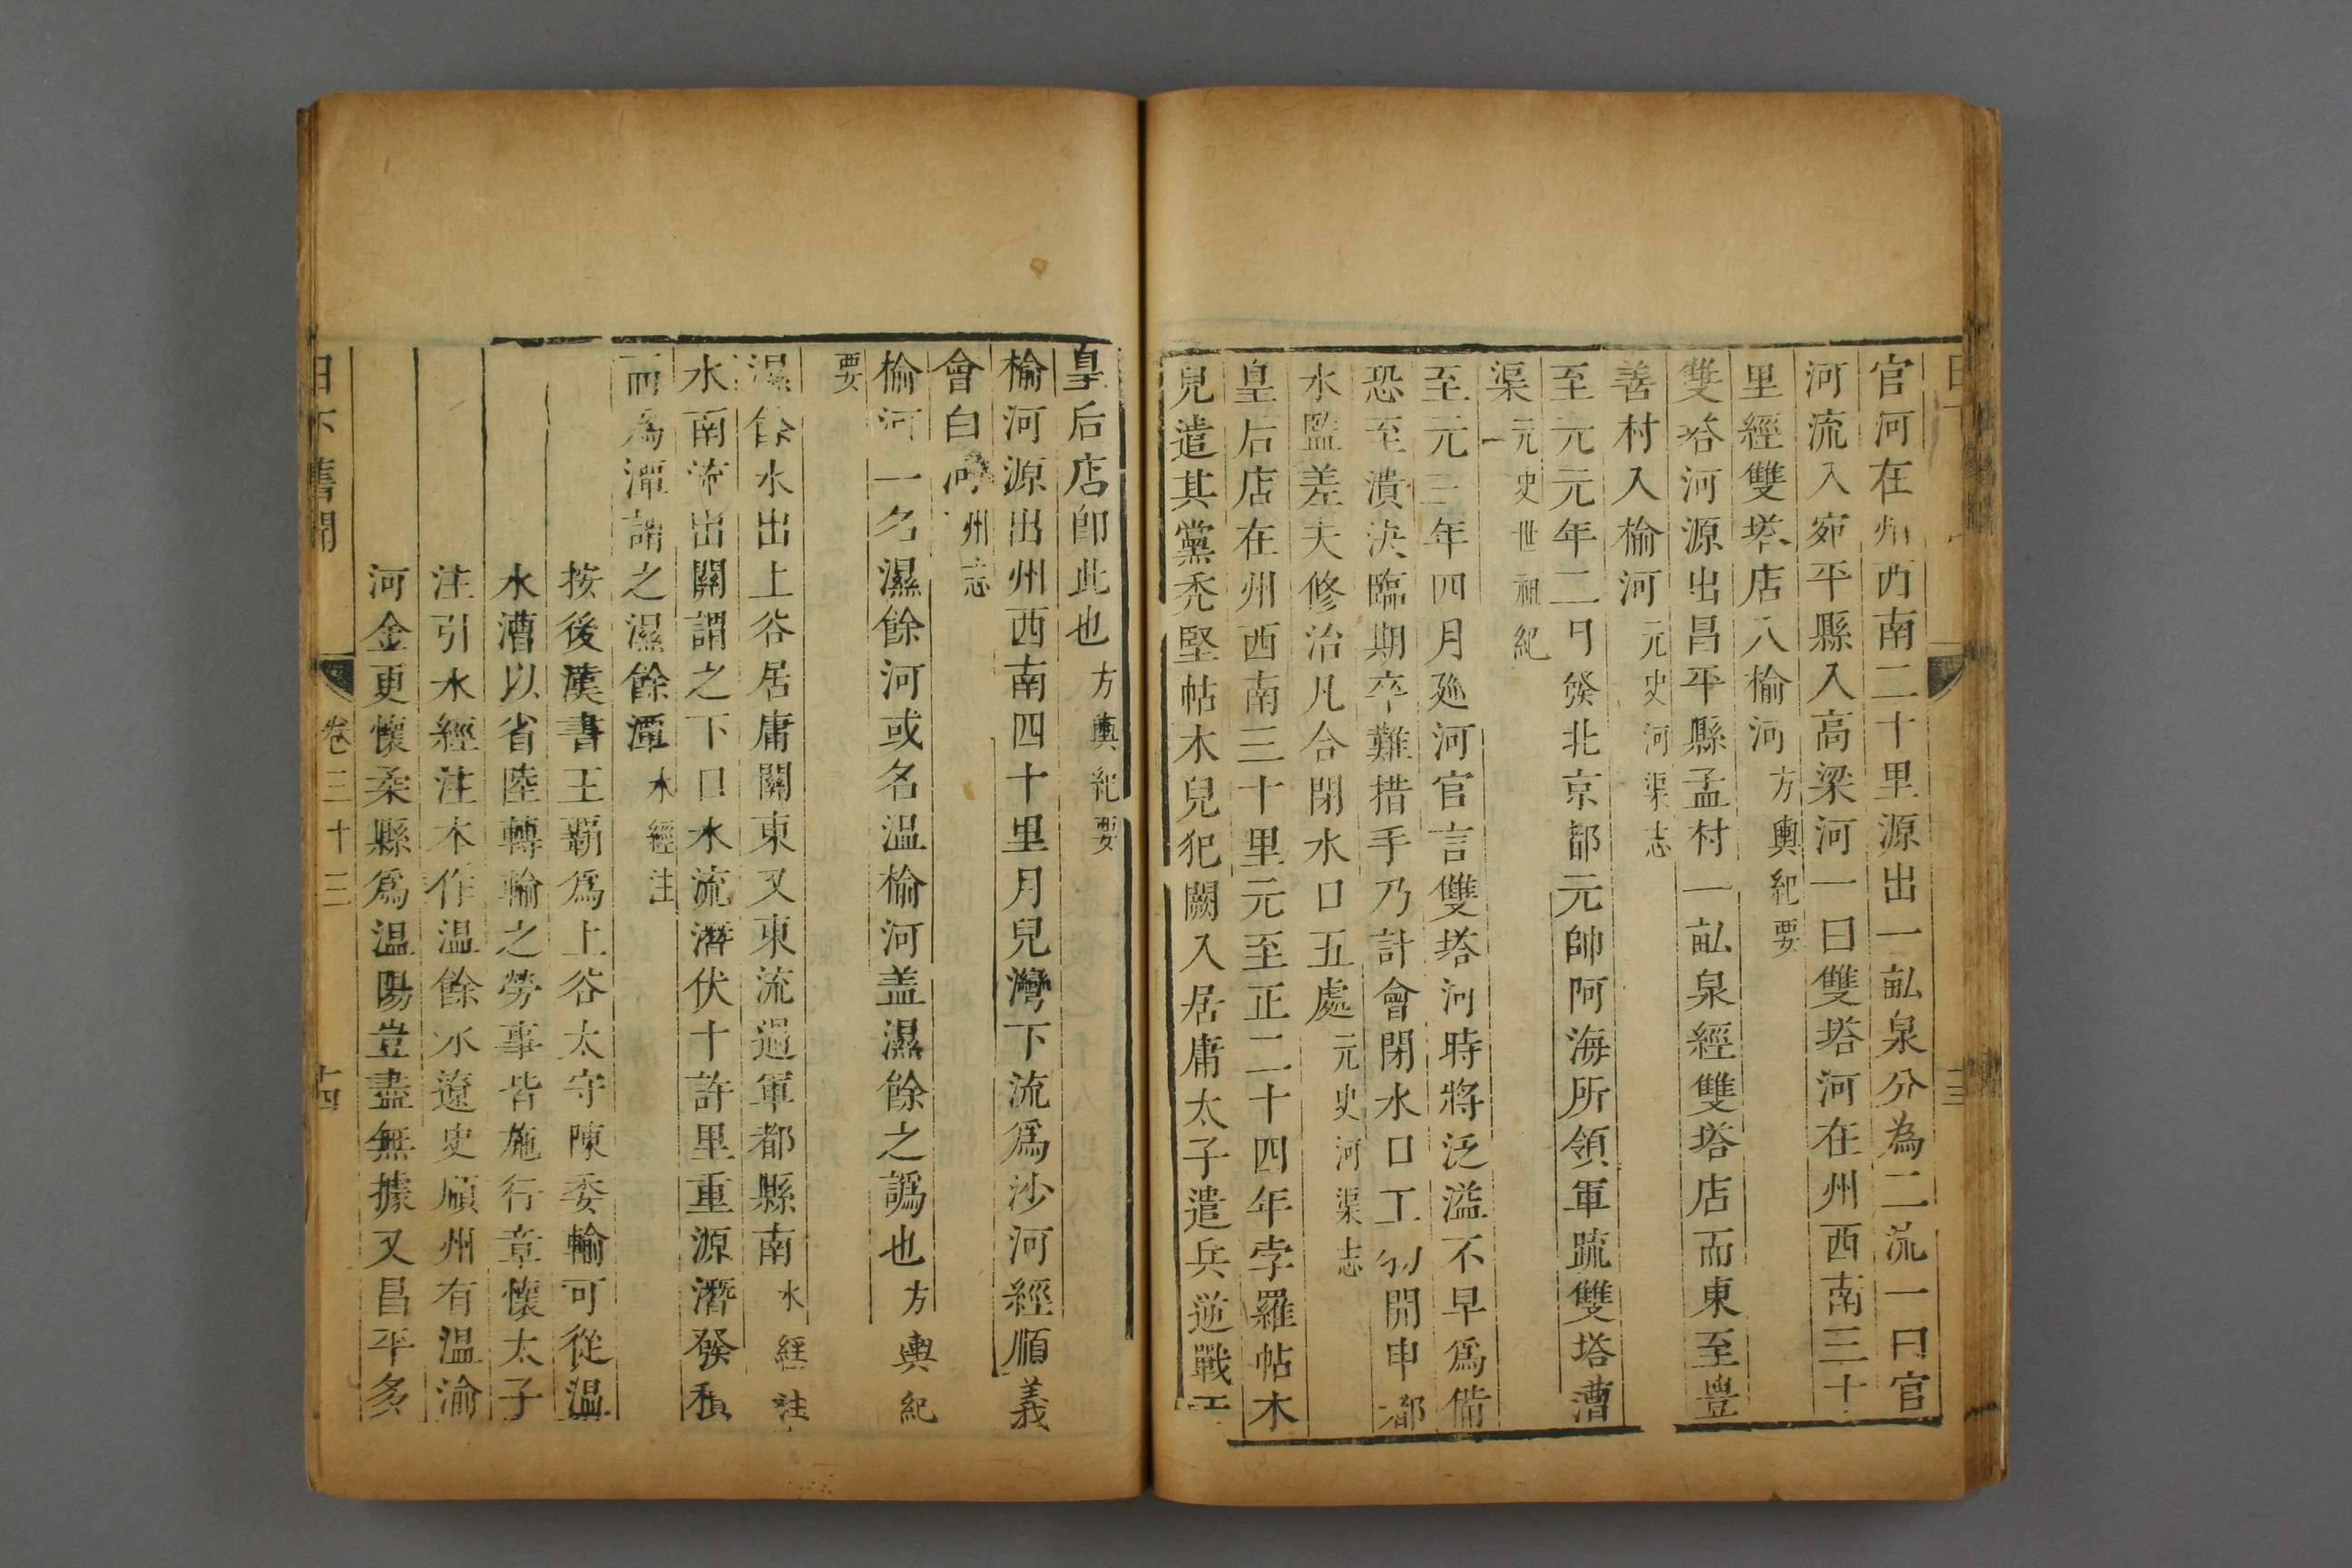 官河在州西南二十里源出一畝泉分為二流一曰官
河流入宛平縣入高梁河一曰雙塔河在州西南三十
里經雙塔店入榆河方輿紀要
雙塔河源出昌平縣孟村一畝泉經雙塔店而東至豐
善村入榆河元史河渠志
至元元年二月發北京都元帥阿海所領軍疏雙塔漕
渠元史世祖紀
至元三年四月廵河官言雙塔河時將泛溢不早爲備
恐至潰決臨期卒難措手乃計會閉水口工物開申都
水監差夫修治凡合閉水口五處元史河渠志
皇后店在州西南三十里元至正二十四年孛羅帖木
兒遣其黨禿堅帖木兒犯闕入居庸太子遣兵逆戰于
皇后店卽此也方輿紀要
榆河源出州西南四十里月兒灣下流爲沙河經順義
會白河州志
榆河一名濕餘河或名温榆河盖濕餘之譌也方輿紀
要
濕餘水出上谷居庸關東又東流過軍都縣南水經注
水南流出關謂之下口水流潛伏十許里重源潛發積
而爲潭謂之濕餘潭水經注
按後漢書王霸爲上谷太守陳委輸可從温
水漕以省陸轉輸之勞事皆施行章懷太子
注引水經注本作温餘水遼史順州有温渝
河金更懷柔縣爲温陽豈盡無據又昌平多
日下舊聞 卷三十三 十四